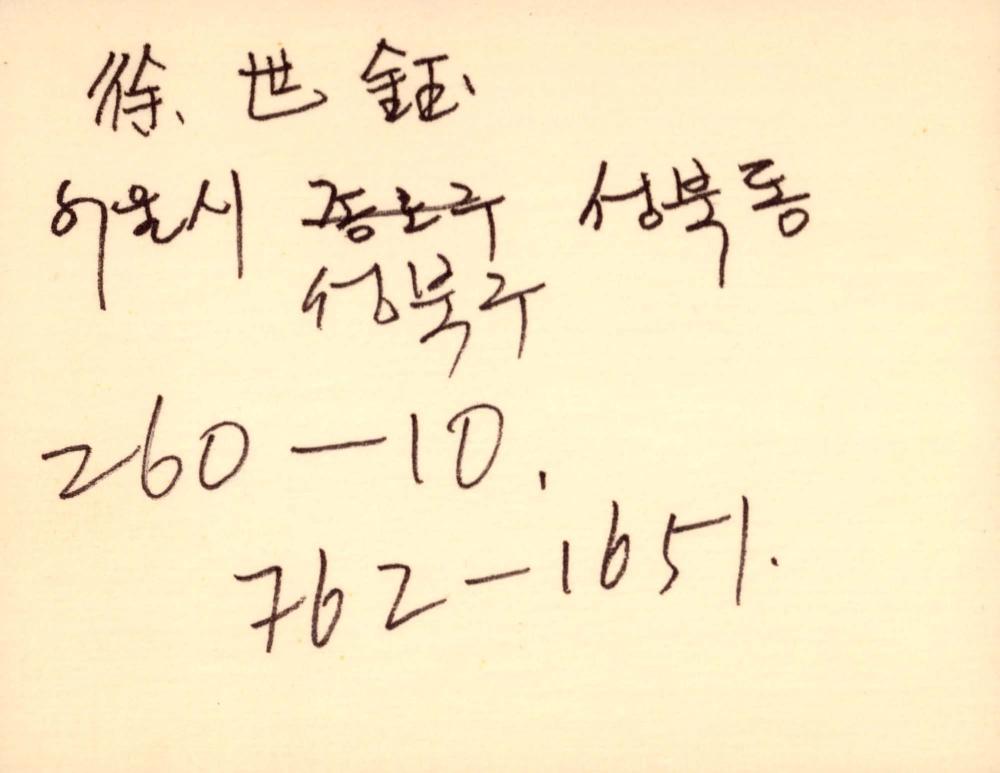 徐 世 鈺
서울시 종로구 성북동
성북구
260-10.
762-1651.